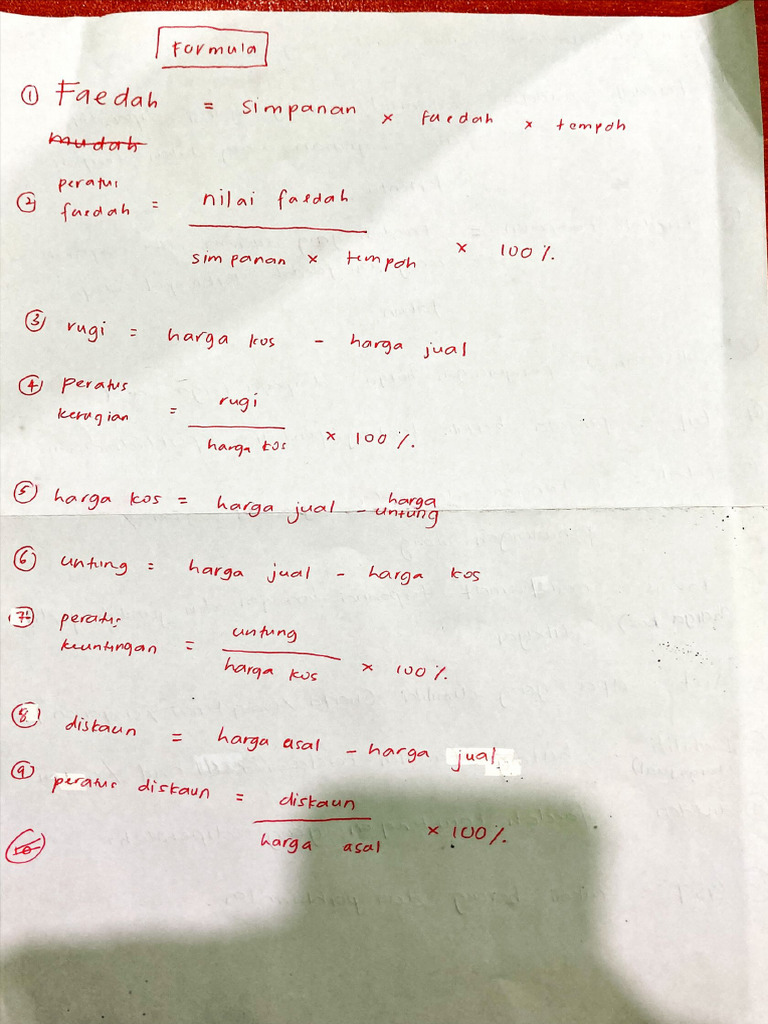 Formula
① Faedah = simpanan × faedah × tempoh
mudah
② peratus
faedah = nilai faedah
simpanan × tempoh × 100%.
③ rugi = harga kos - harga jual
④ Peratus
kerugian = rugi
harga kos × 100%.
⑤ harga kos = harga jual - harga
untung
⑥ untung = harga jual - harga kos
⑦ peratus
keuntingan = untung
harga kos × 100%.
⑧ diskaun = harga asal - harga jual
⑨ peratus diskaun = diskaun
harga asal × 100%.